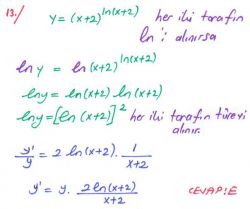 13./ y = (x+2)^ln(x+2) her iki tarafın
ln'i alınırsa
ln y = ln(x+2)^ln(x+2)
lny = ln(x+2) . ln(x+2)
lny = [ln(x+2)]^2 her iki tarafın türevi
alınır.
y'/y = 2 ln(x+2) . 1/(x+2)
y' = y . 2ln(x+2)/(x+2) CEVAP:E